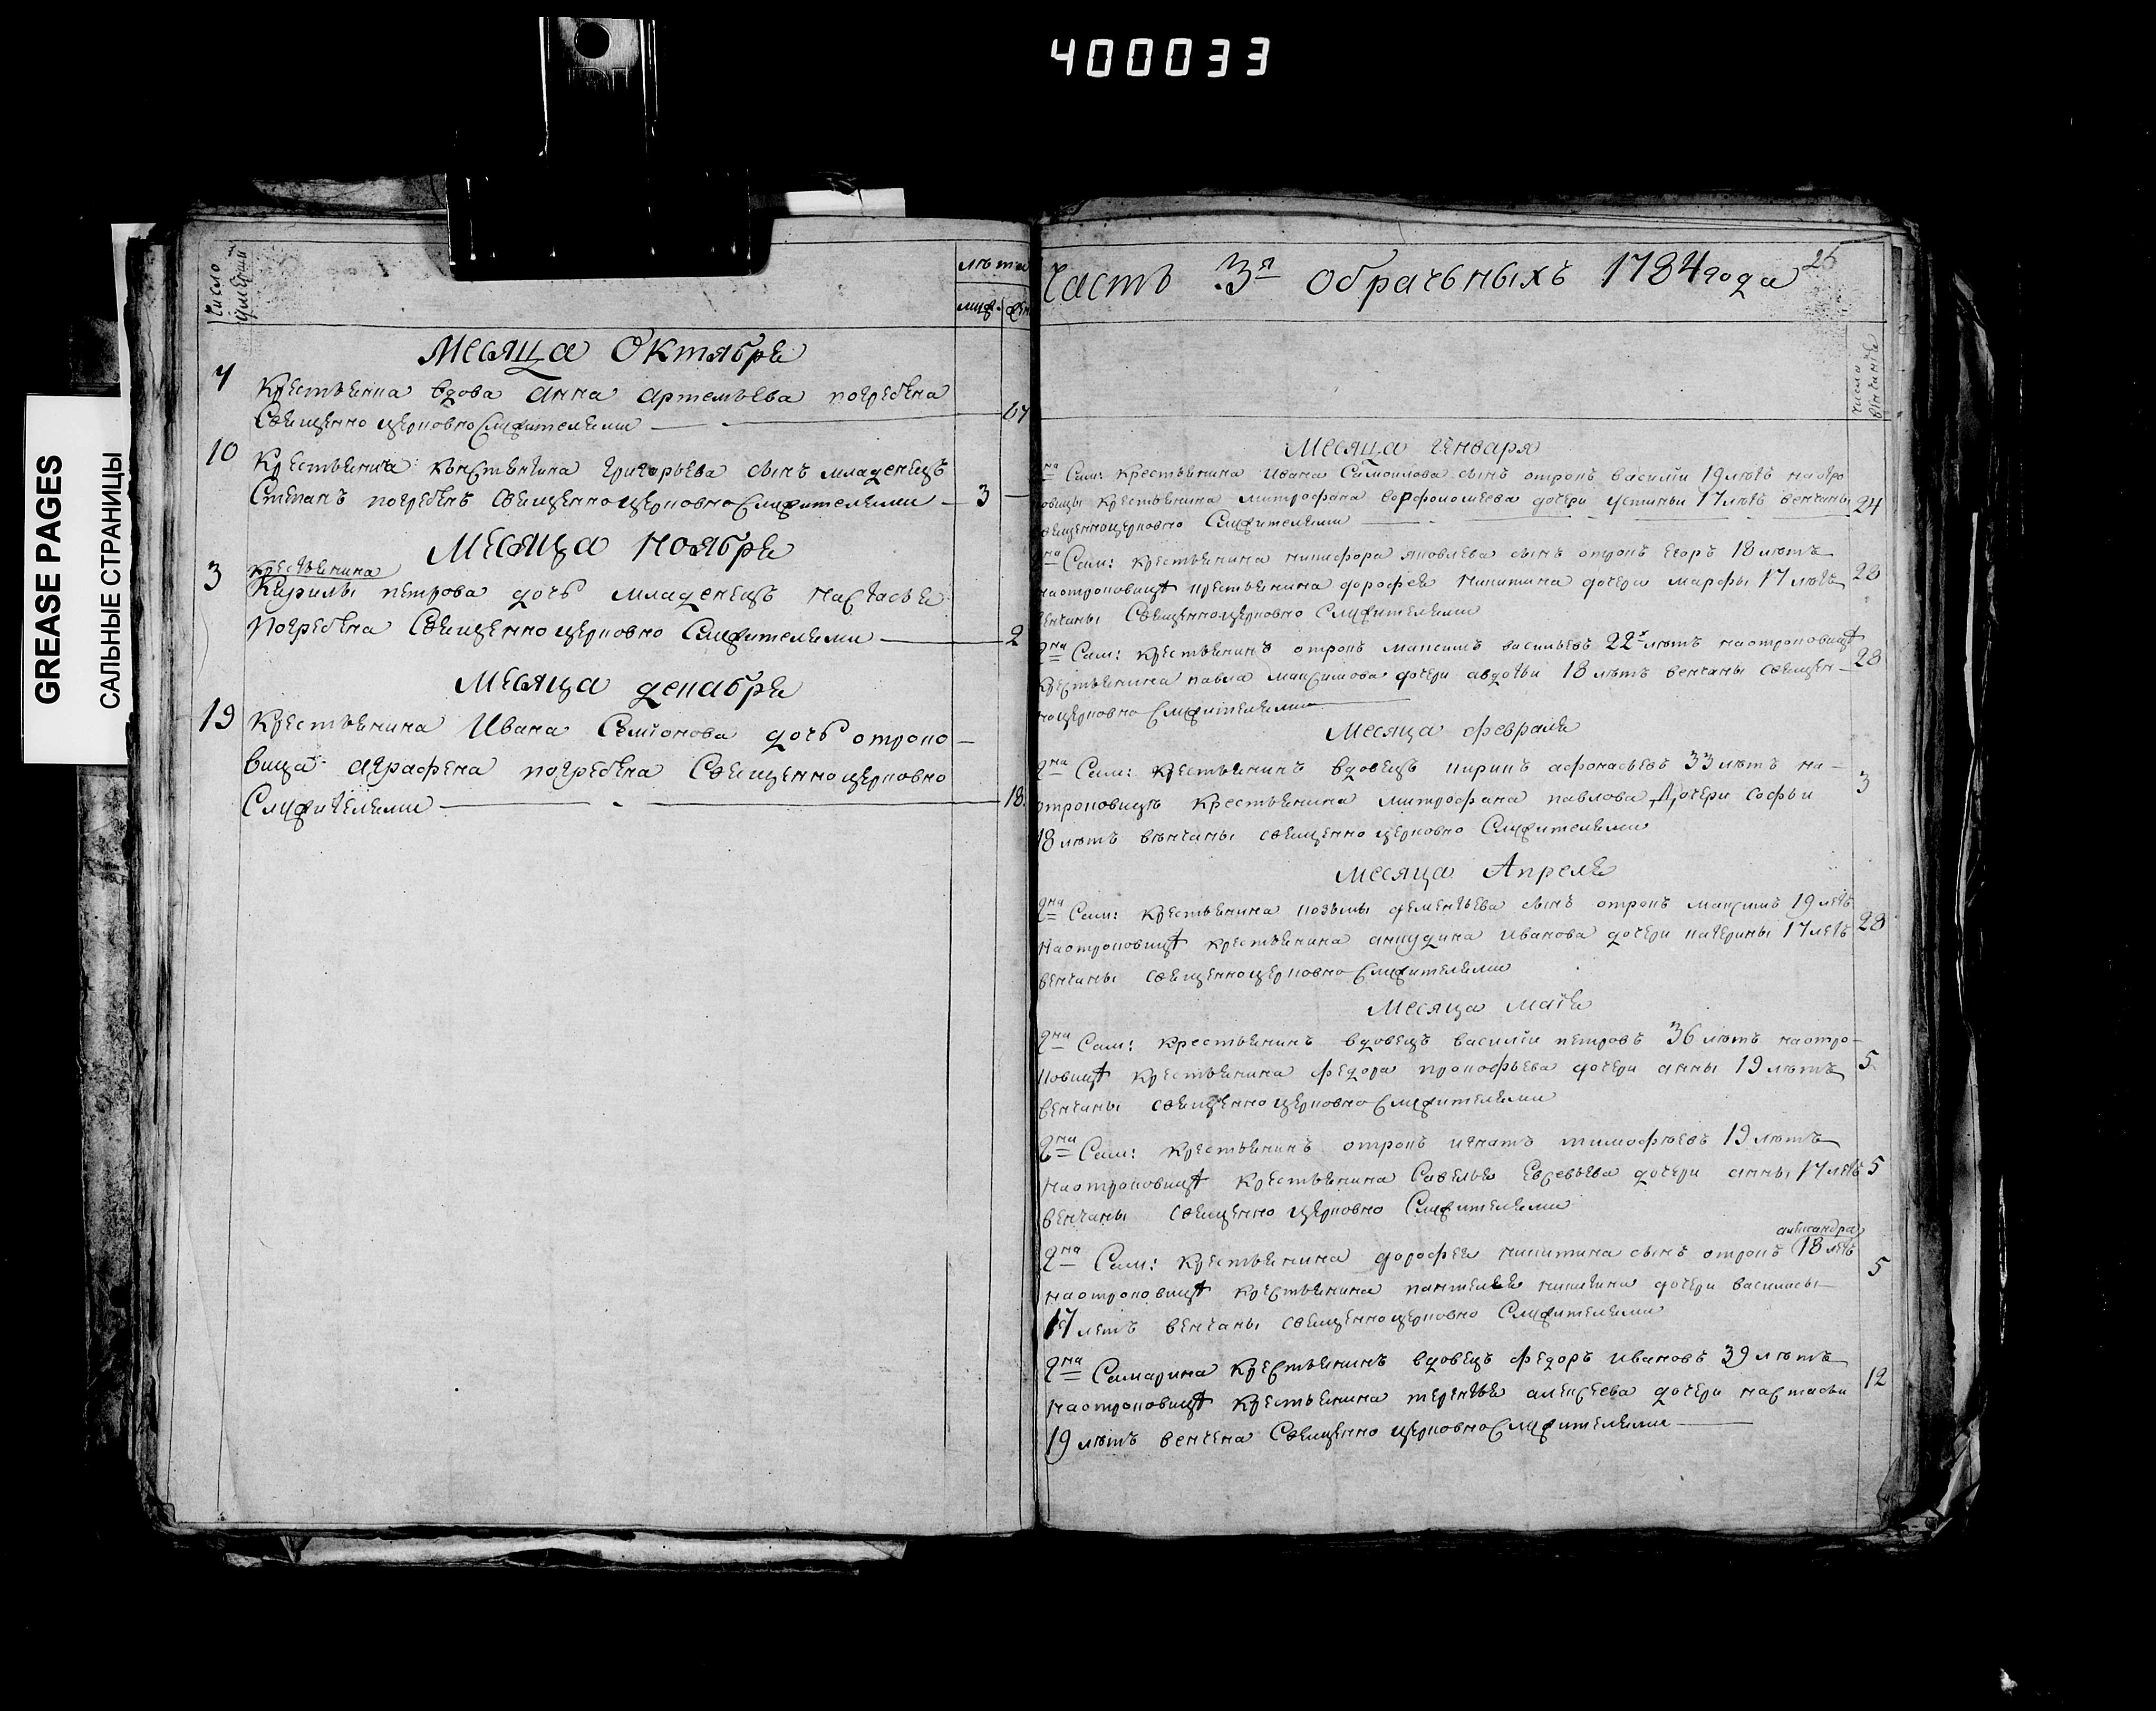 400033
GREASE PAGES
САЛЬНЫЕ СТРАНИЦЫ
Число
умерши
лѣта
муж. жен
Месяца Октября
7 Крестьянина вдова Анна Артемьева погребена
Священно церковно Служителями 67
10 Крестьянина Констентина Григорьева сынъ младенецъ
Степанъ погребенъ священноцерковно Служителями 3
Месяца Ноября
крестьянина
3 Кирилы петрова дочь младенецъ настасья
погребена Священно церковно Служителями 2
Месяца декабря
19 Крестьянина Ивана Семионова дочь отроко
вица аграфена погребена Священноцерковно
Служителями 18
Часть 3я обрачьныхъ 1784 года 25
число
венчания
Месяца Генваря
Сам: крестьянина Ивана Самоилова сынъ отрокъ василии 19 лѣтъ на отро
ковицы крестьянина митрофана ворфоломеева дочери устиньи 17 лѣтъ венчаны 24
священноцерковно Служителями
Сам: крестьянина никифора яковлева сынъ отрокъ Егоръ 18 лѣтъ
наотроковицѣ крестьянина дорофея никитина дочери марфы 17 лѣтъ 28
венчаны Священноцерковно Служителями
Сам: крестьянинъ отрокъ максимъ васильевъ 22х лѣтъ наотроковицѣ
крестьянина павла максимова дочери авдотьи 18 лѣтъ венчаны священ- 28
ноцерковно Служителями
Месяца февраля
Сам: крестьянинъ вдовецъ кирикъ афонасьевъ 33 лѣтъ на-
отроковицѣ крестьянина митрофана павлова Дочери софьи 3
18 лѣтъ вѣнчаны священно церковно Служителями
Месяца Апреля
Сам: крестьянина козьмы дементьева сынъ отрокъ максимъ 19 летъ
наотроковицѣ крестьянина анкудина Иванова дочери катерины 17 летъ 28
венчаны священноцерковно Служителями
Месяца Маия
Сам: крестьянинъ вдовецъ василии петровъ 36 лѣтъ наотро-
ковицѣ крестьянина федора прокофьева дочери анны 19 лѣтъ 5
венчаны священно церковно Служителями
Сам: крестьянинъ отрокъ игнатъ тимофѣевъ 19 лѣтъ
наотроковицѣ крестьянина Савелья Евсевьева дочери анны 17 летъ 5
венчаны священно церковно Служителями
александра
Сам: крестьянина дорофея никитина сынъ отрокъ 18 летъ
наотроковицѣ крестьянина пантелея никитина дочери василисы 5
17 летъ венчаны священноцерковно Служителями
Самарина крестьянинъ вдовецъ федоръ ивановъ 39 лѣтъ
наотроковицѣ крестьянина терентья алексеева дочери настасьи 12
19 лѣтъ венчена Священно церковно Служителями